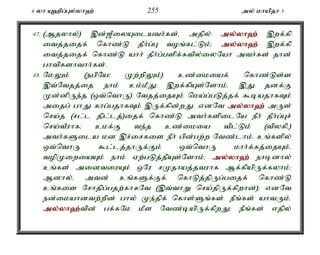 6 லா யுஹிப்புல்லாஹ் 255 அல் மாயிதா 5
47. (ஆதலால்) இன்ஜீலையுடையவர்கள், அதில் அல்லாஹ் இறக்கி
வைத்ததைக் கொண்டு தீர்ப்பு வழங்கட்டும்; அல்லாஹ் இறக்கி
வைத்ததைக் கொண்டு யார் தீர்ப்பளிக்கவில்லையோ அவர்கள் தான்
பாவிகளாவார்கள்.
48. மேலும் (நபியே! முற்றிலும்) உண்மையைக் கொண்டுள்ள
இவ்வேதத்தை நாம் உம்மீது இறக்கியுள்ளோம், இது தனக்கு
முன்னிருந்த (ஒவ்வொரு) வேதத்தையும் மெய்ப்படுத்தக் கூடியதாகவும்
அதைப் பாது காப்பதாகவும் இருக்கின்றது. எனவே அல்லாஹ் அருள்
செய்த (சட்ட திட்டத்)தைக் கொண்டு அவர்களிடையே நீர் தீர்ப்புச்
செய்வீராக; உமக்கு வந்த உண்மையை விட்டும் (விலகி,)
அவர்களுடைய மன இச்சைகளை நீர் பின்பற்ற வேண்டாம். உங்களில்
ஒவ்வொரு கூட்டத்தாருக்கும் ஒவ்வொரு மார்க்கத்தையும்,
வழிமுறையையும் நாம் ஏற்படுத்தியுள்ளோம்; அல்லாஹ் நாடினால்
உங்கள் அனைவரையும் ஒரே சமுதாயத்தவராக ஆக்கியிருக்கலாம்;
ஆனால், அவன் உங்களுக்குக் கொடுத்திருப்பதைக் கொண்டு
உங்களை சோதிப்பதற்காகவே (இவ்வாறு செய்திருக்கிறான்); எனவே
நன்மையானவற்றின் பால் முந்திக் கொள்ளுங்கள். நீங்கள் யாவரும்,
அல்லாஹ்வின் பக்கமே மீள வேண்டியிருக்கிறது; நீங்கள் எதில்